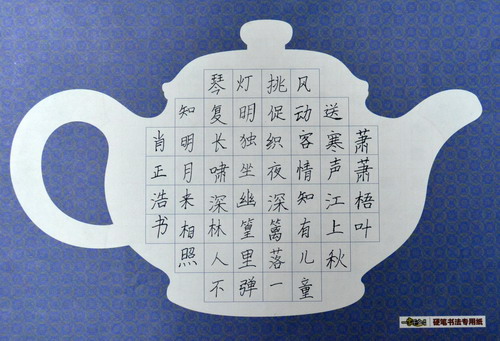 萧萧梧叶
送寒声江上秋
风动客情知有儿童
挑促织夜深篱落一
灯明独坐幽篁里弹
琴复长啸深林人不
知明月来相照
肖正浩书
硬笔书法专用纸